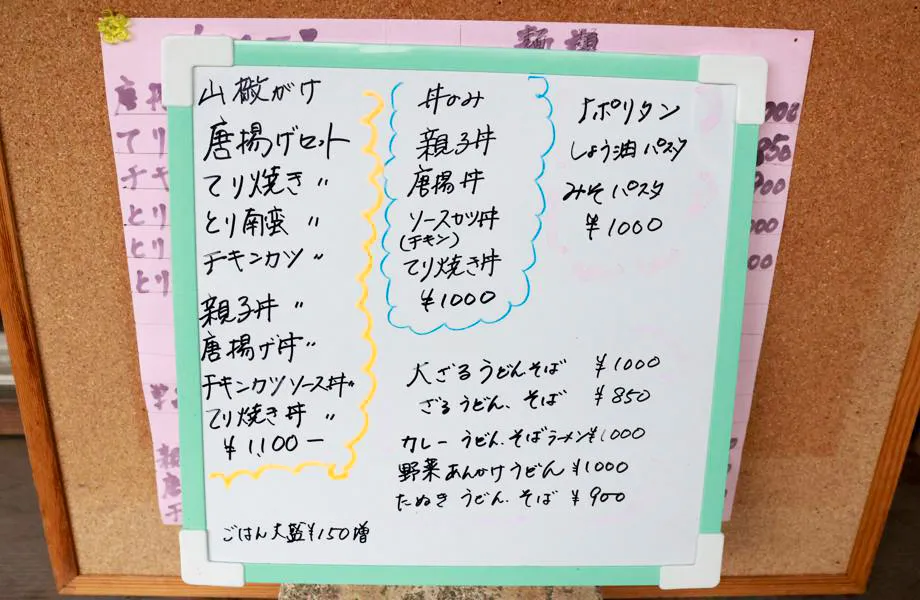 山椒がけ
唐揚げセット
てり焼き 〃
とり南蛮 〃
チキンカツ 〃
親子丼 〃
唐揚げ丼 〃
チキンカツソース丼 〃
てり焼き丼 〃
¥1,100−
ごはん大盛¥150増
丼のみ
親子丼
唐揚丼
ソースカツ丼
(チキン)
てり焼き丼
¥1000
ナポリタン
しょう油パスタ
みそパスタ
¥1000
大ざるうどん.そば ¥1000
ざるうどん、そば ¥850
カレーうどん.そばラーメン¥1000
野菜あんかけうどん ¥1000
たぬきうどん.そば ¥900
麺類
唐揚
てり
チキ
とり
とり
とり
850